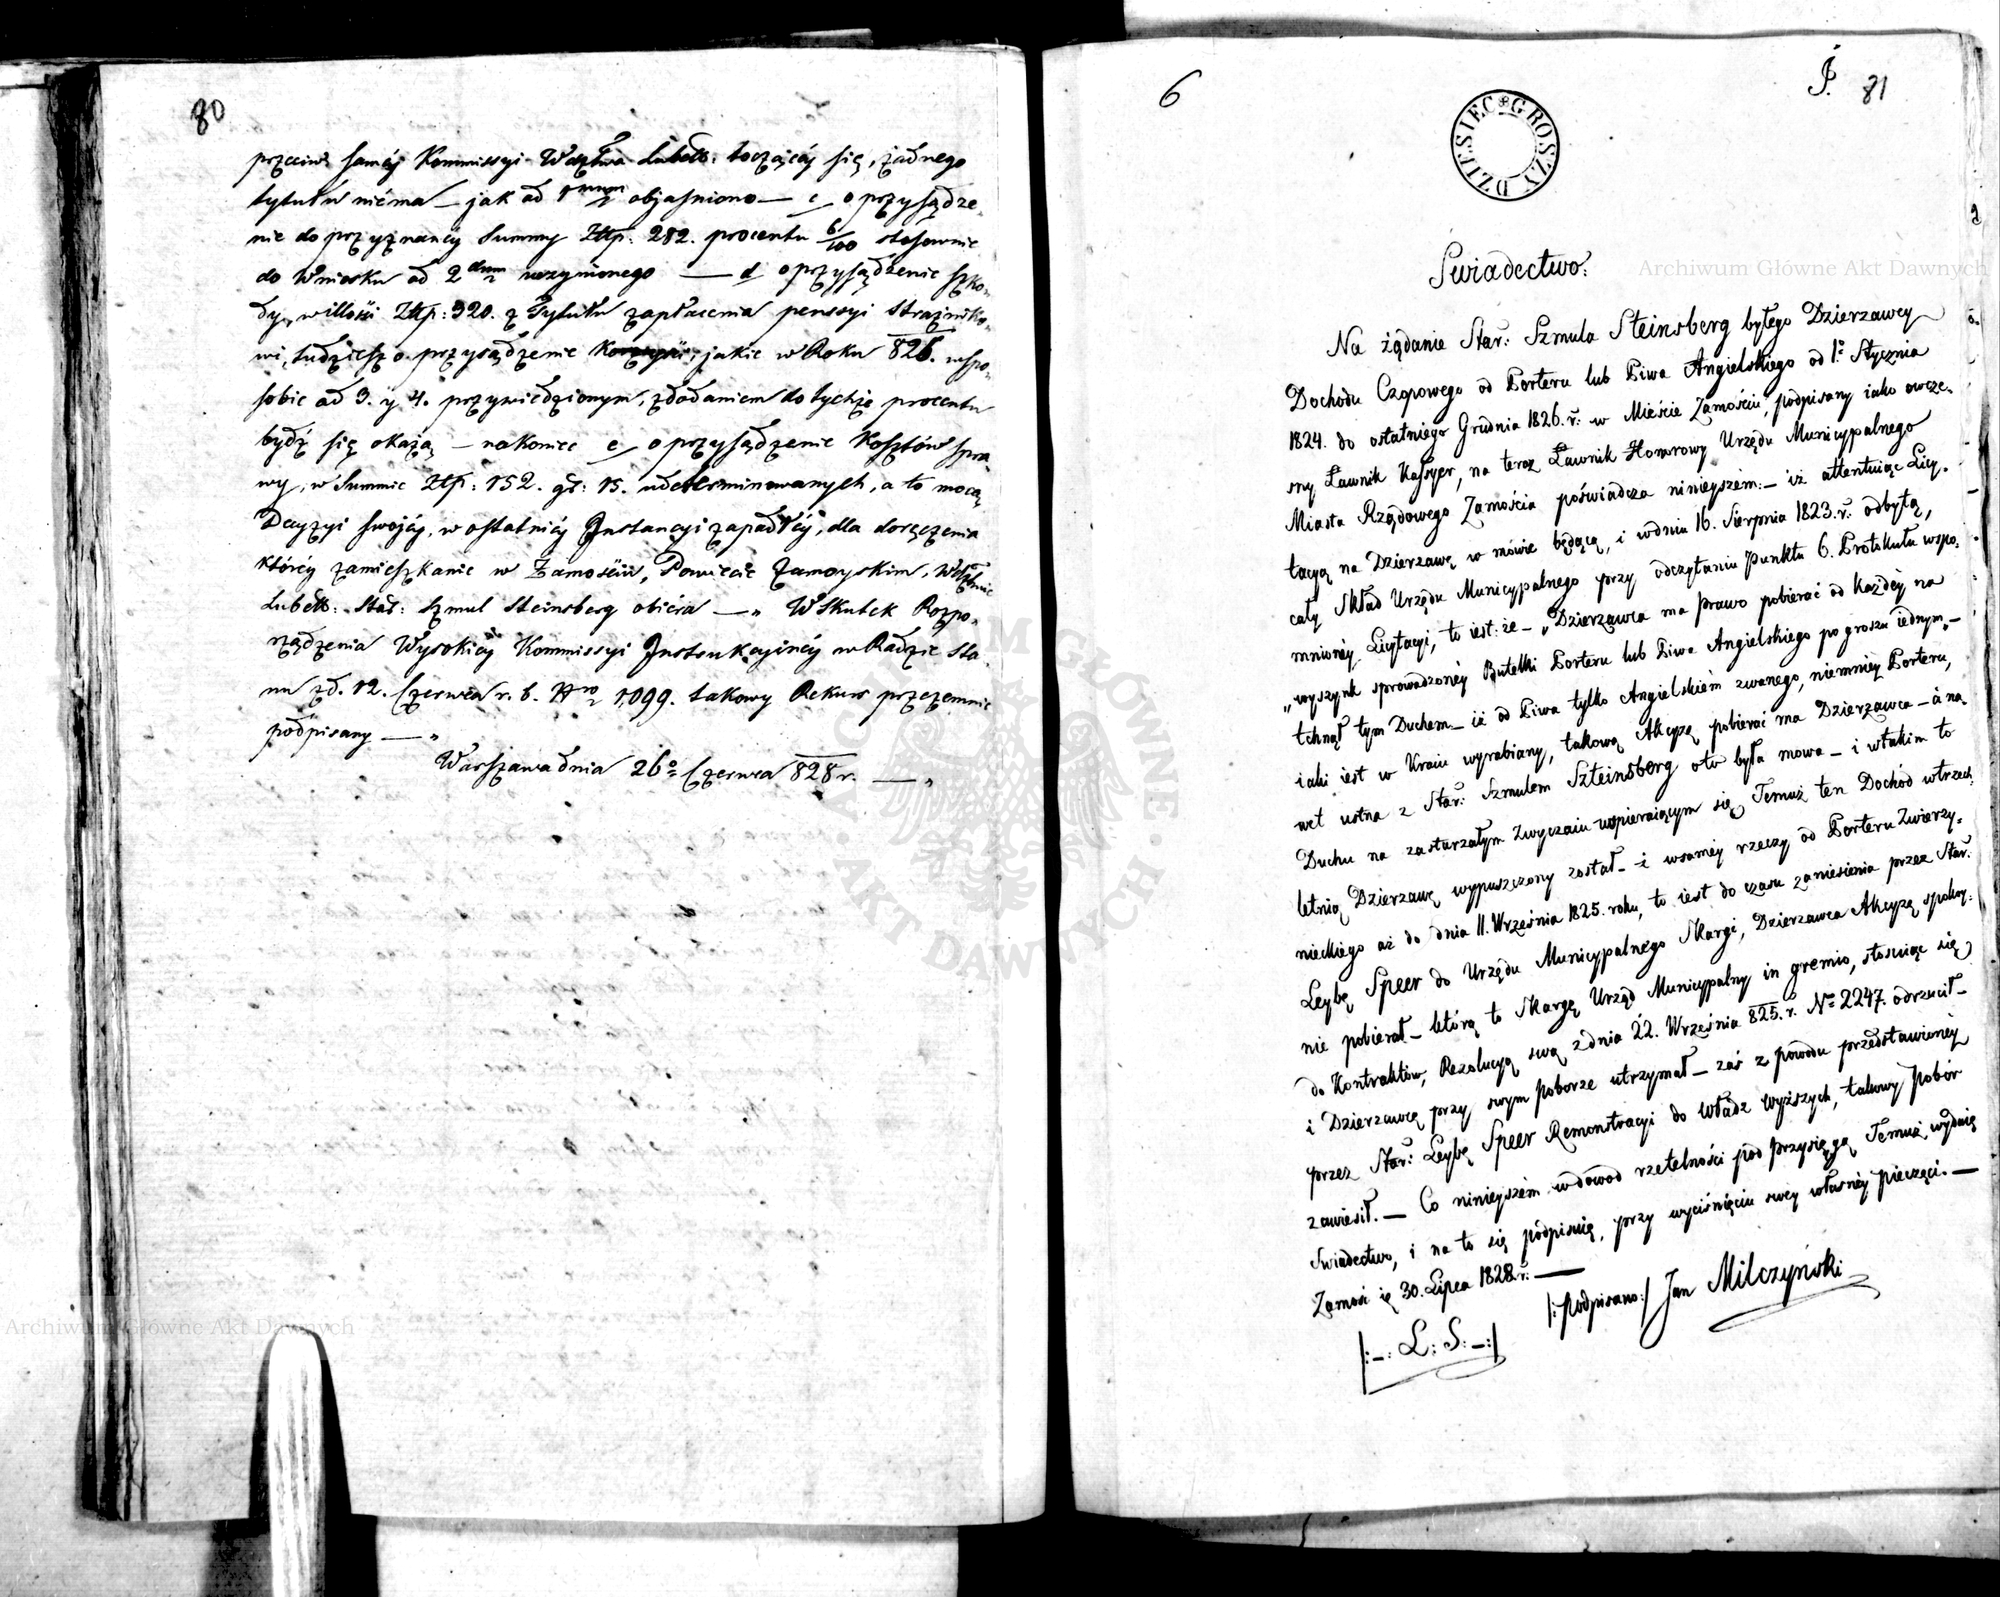 80
przeciw samey Kommissyi Wdztwa Lubelk: toczącéy się, żadnego
tytułu niéma — jak ad 1mum objaśniono — c/ o przysądze-
nie do przyznanéy Summy Złtp: 282. procentu 6/100 stosownie
do Wniosku ad 2dum uczynionego — d/ o przysądzenie szko-
dy, w illości Złtp: 320. z Tytułu zapłacenia penssyi Strażniko-
wi, tudzież o przysądzenie jakie w Roku 826. w spo-
sobie ad 3. y 4. przywiedzionym, z dodaniem do tychże procentu
bydź się okażą — nakoniec e/ o przysądzenie Kosztów spra-
wy, w Summie Złtp: 152. gr: 15. udeterminowanych, a to mocą
Decyzyi swojéy, w ostatniéy Instancyi zapadłéy, dla doręczenia
któréy zamieszkanie w Zamościu, Powiecie Zamoyskim, Wdztwie
Lubelk: Star: Szmul Steinsberg obiéra — „ W Skutek Rozpo-
rządzenia Wysokiéy Kommissyi Instrukcyinéy w Radzie Sta-
nu z d. 12. Czerwca r. b. Nro 1,099. takowy Rekurs przezemnie
podpisany — „
Warszawa dnia 26o Czerwca 828 r. — „
6
81
DZIESIEC GROSZY
Swiadectwo:
Na żądanie Star: Szmula Steinsberg byłego Dzierzawcy
Dochodu Czopowego od Porteru lub Piwa Angielskiego od 1o Stycznia
1824. do ostatniego Grudnia 1826. r: w Mieście Zamościu, podpisany iako owcze-
sny Ławnik Kassyer, na teraz Ławnik Honorowy Urzędu Municypalnego
Miasta Rządowego Zamościa poświadcza ninieyszém: — iż attentuiąc Licy-
tacyą na Dzierzawę w mówie będącą, i w dniu 16. Sierpnia 1823. r. odbytą,
cały Skład Urzędu Municypalnego przy odczytaniu Punktu 6. Protokułu wspo-
mnioney Licytacyi, to iest: że — „Dzierzawca ma prawo pobierać od każdéy na
„wyszynk sprowadzonéy Butelki Porteru lub Piwa Angielskiego po groszu iednym„ —
tchnął tym Duchem — iż od Piwa tylko Angielskiém zwanego, niemniéy Porteru,
iaki iest w Kraiu wyrabiany, takową Akcyzę pobierać ma Dzierzawca — à na-
wet ustna z Star: Szmulem Szteinsberg oto była mowa — i w takim to
Duchu na zastarzałym Zwyczaiu wspieraiącym się Temuż ten Dochód w trzech-
letnią Dzierzawę wypuszczony został — i w samey rzeczy od Porteru Zwierzy-
nieckiego aż do dnia 11. Września 1825. roku, to iest do czasu zaniesienia przez Star:
Leybę Speer do Urzędu Municypalnego Skargi, Dzierzawca Akcyzę spokoy-
nie pobierał — którą to Skargę Urząd Municypalny in gremio, stosuiąc się
do Kontraktów, Rezolucyą swą z dnia 22. Września 825. r. No 2247. odrzucił —
i Dzierzawcę przy swym poborze utrzymał — zaś z powodu przedstawionéy
przez Star: Leybę Speer Remonstracyi do Władz wyższych, takowy Pobór
zawiesił. — Co ninieyszém w dowod rzetelności pod Przysięgą Temuż wydaię
Swiadectwo, i na to się podpisuię, przy wyciśnięciu swey własnéy Pieczęci. —
Zamość ię 30. Lipca 1828. r: —
/:podpisano:/ Jan Milczyński
/:–: L: S: –:/
Archiwum Główne Akt Dawnych
Archiwum Główne Akt Dawnych
ARCHIWUM GŁÓWNE · AKT DAWNYCH ·